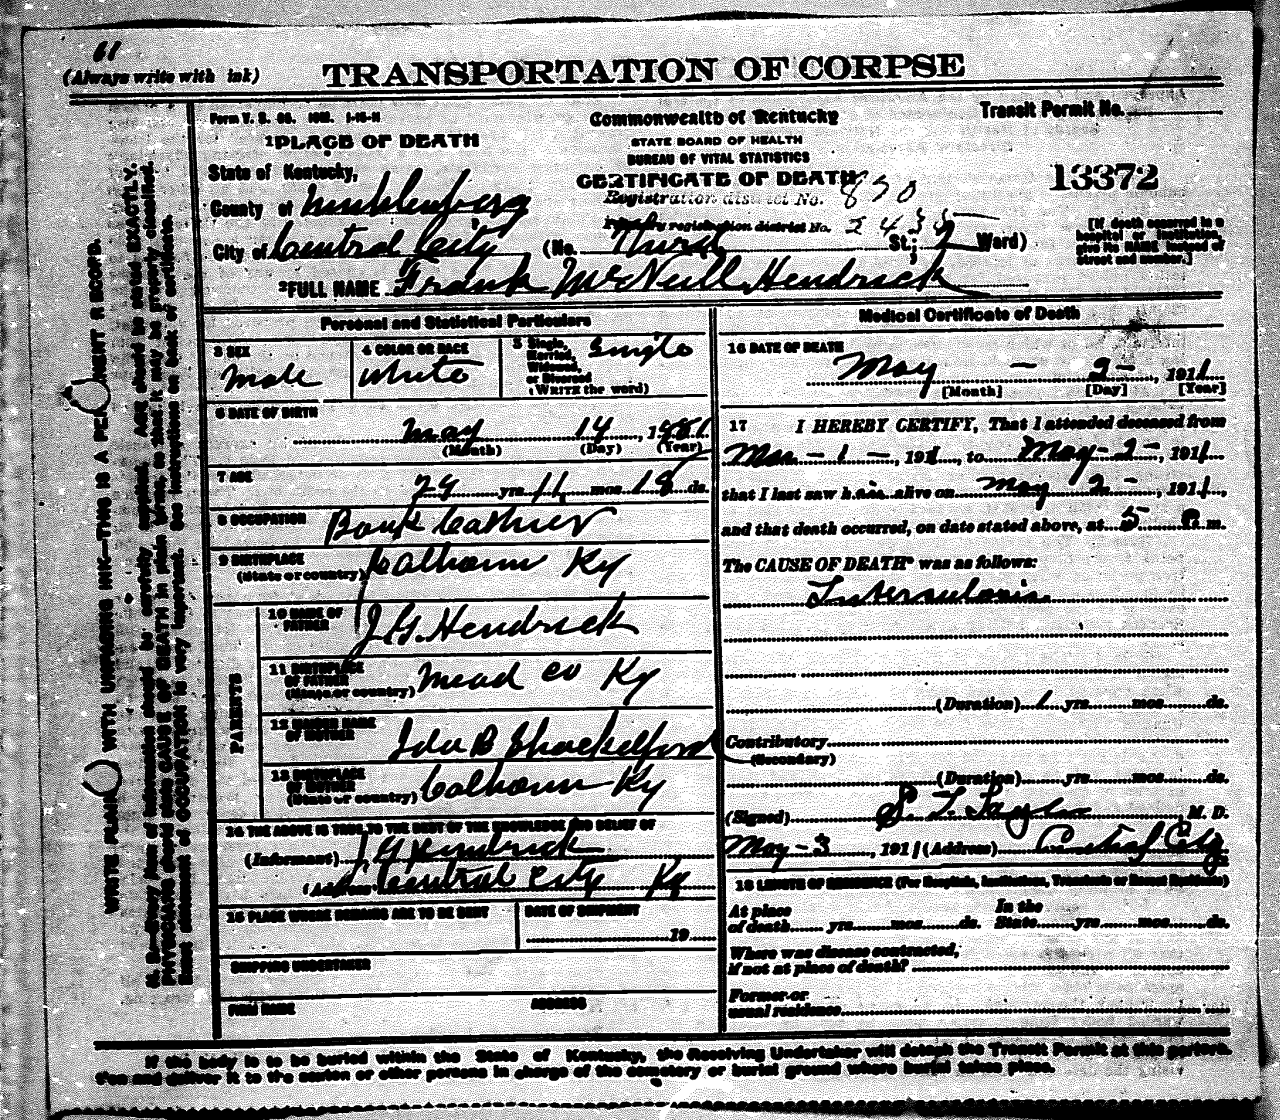 61
(Always write with ink)
TRANSPORTATION OF CORPSE
Form V. S. 1-15-11
Commonwealth of Kentucky
Transit Permit No.
1 PLACE OF DEATH
STATE BOARD OF HEALTH
BUREAU OF VITAL STATISTICS
State of Kentucky,
CERTIFICATE OF DEATH
13372
County of Muhlenberg
Registration district No. 870
registration district No. 2435
City of Central City (No. Third St.; 2 Ward)
[If death occurred in a hospital or institution, give its NAME instead of Street and number.]
2 FULL NAME Frank McNeill Hendrick
Personal and Statistical Particulars
3 SEX
Male
4 COLOR OR RACE
White
5 Single,
Married,
Widowed,
or Divorced
(WRITE the word)
Single
6 DATE OF BIRTH
May 14, 1881
(Month) (Day) (Year)
7 AGE
29 yrs. 11 mos. 18 ds.
8 OCCUPATION
Bank Cashier
9 BIRTHPLACE
(State or country)
Calhoun Ky
PARENTS
10 NAME OF
FATHER
J. G. Hendrick
11 BIRTHPLACE
OF FATHER
(State or country)
Mead co Ky
12 MAIDEN NAME
OF MOTHER
Ida B Shackelford
13 BIRTHPLACE
OF MOTHER
(State or country)
Calhoun Ky
14 THE ABOVE IS TRUE TO THE BEST OF THE KNOWLEDGE AND BELIEF OF
(Informant) J G Hendrick
(Address) Central City Ky
15 PLACE WHERE REMAINS ARE TO BE SENT
DATE OF SHIPMENT
19
SHIPPING UNDERTAKER
FIRM NAME
ADDRESS
Medical Certificate of Death
16 DATE OF DEATH
May - 2 -, 1911
[Month] [Day] [Year]
17 I HEREBY CERTIFY, That I attended deceased from
Mar - 1 -, 1911, to May - 2 -, 1911,
that I last saw him alive on May 2 -, 1911,
and that death occurred, on date stated above, at 5 m.
The CAUSE OF DEATH* was as follows:
Tuberculosis
(Duration) 1 yrs. mos. ds.
Contributory
(Secondary)
(Duration) yrs. mos. ds.
(Signed) S. T. Taylor M. D.
May - 3, 1911 (Address) Central City
18 LENGTH OF RESIDENCE (For Hospitals, Institutions, Transients or Recent Residents)
At place
of death yrs. mos. ds.
In the
State yrs. mos. ds.
Where was disease contracted,
if not at place of death?
Former or
usual residence
If the body is to be buried within the State of Kentucky, the Receiving Undertaker will detach the Transit Permit at this perforation
and deliver it to the sexton or other persons in charge of the cemetery or burial ground where burial takes place.
WRITE WITH UNFADING INK—THIS IS A RECORD.
N. B.—Every item of information should be carefully supplied. Age should be stated EXACTLY.
PHYSICIANS should state CAUSE OF DEATH in plain terms, so that it may be properly classified.
Exact statement of OCCUPATION is very important. See instructions on back of certificate.